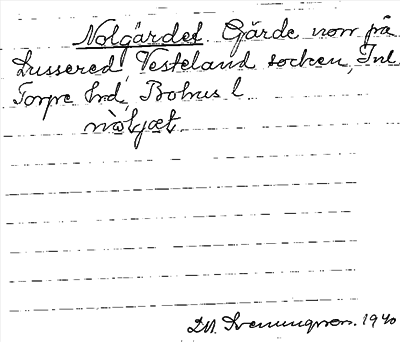 Nolgärdet Gärde norr på
Lussered, Västerland socken, Inl.
Torpe hrd, Bohus l
nòljæt
D.A. Svenungsson. 1940